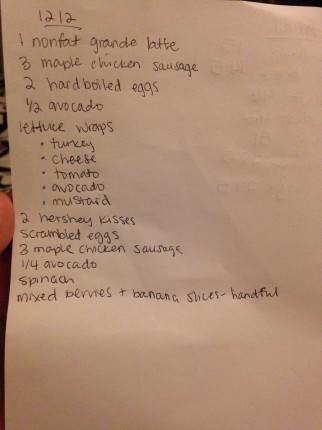 1212
1 nonfat grande latte
3 maple chicken sausage
2 hardboiled eggs
1/2 avocado
lettuce wraps
• turkey
• cheese
• tomato
• avocado
• mustard
2 hershey kisses
scrambled eggs
3 maple chicken sausage
1/4 avocado
spinach
mixed berries + banana slices - handful